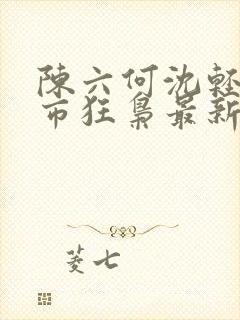 陳六何沈輕
市狂梟最新
菱七